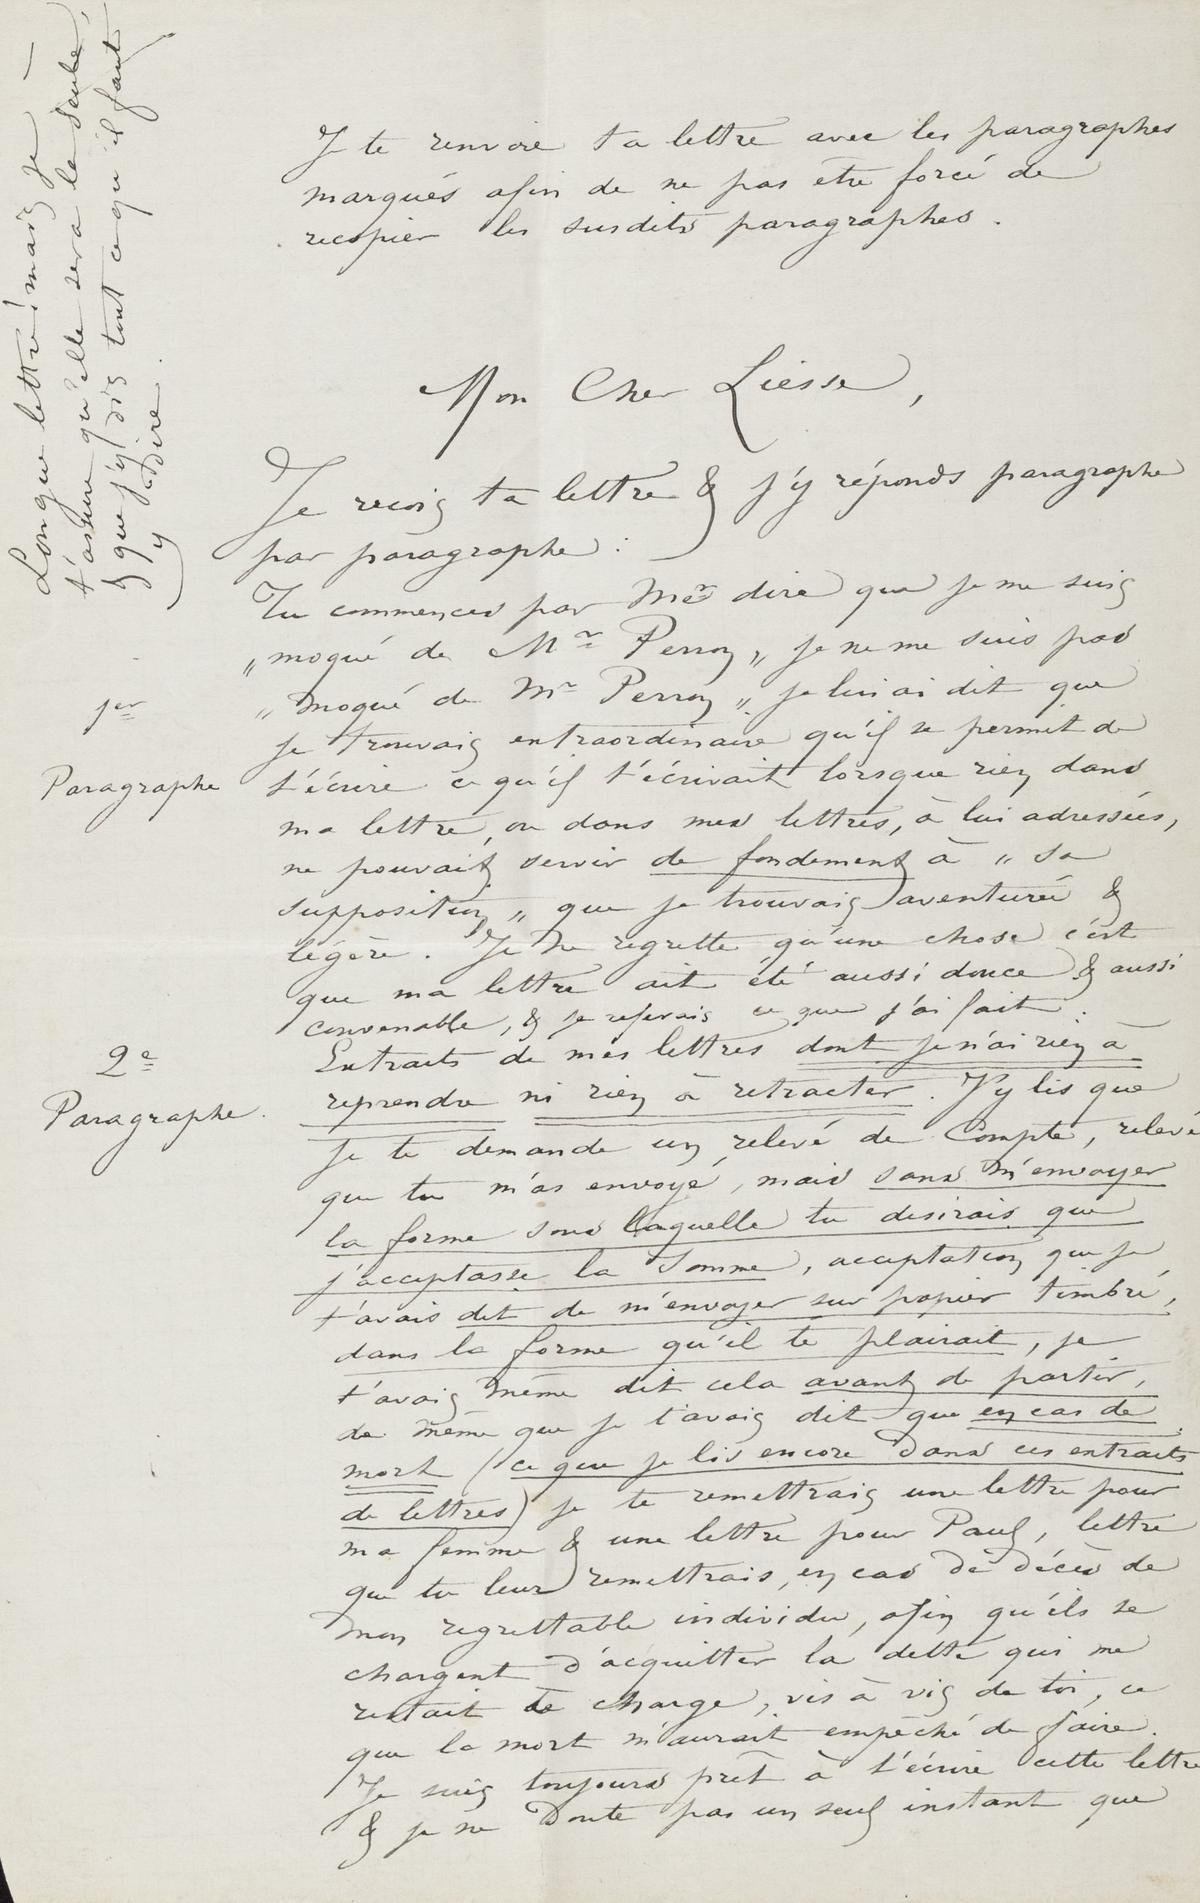 Longue lettre! mais je
t'assure qu'elle sera la seule,
& que j'y dis tout ce qu'il faut
y dire.
Je te renvoie ta lettre avec les paragraphes
marqués afin de ne pas être forcé de
recopier les susdits paragraphes.
Mon Cher Liesse,
Je reçois ta lettre & j'y réponds paragraphe
par paragraphe :
Tu commences par me dire que je me suis
„ moqué de Mr Perroy „ je ne me suis pas
1er
„ moqué de Mr Perroy „ je lui ai dit que
je trouvais extraordinaire qu'il se permit de
Paragraphe
t'écrire ce qu'il t'écrivait lorsque rien dans
ma lettre, ou dans mes lettres, à lui adressées,
ne pouvait servir de fondement à „ sa
supposition „ que je trouvais aventurée &
légère. Je ne regrette qu'une chose c'est
que ma lettre ait été aussi douce & aussi
convenable, & je referais ce que j'ai fait.
2e
Extraits de mes lettres dont je n'ai rien à
Paragraphe.
reprendre ni rien à retracter. J'y lis que
je te demande un relevé de Compte, relevé
que tu m'as envoyé, mais sans m'envoyer
la forme sous laquelle tu desirais que
j'acceptasse la somme, acceptation que je
t'avais dit de m'envoyer sur papier timbré,
dans la forme qu'il te plairait, je
t'avais même dit cela avant de partir,
de même que je t'avais dit que en cas de
mort (ce que je lis encore dans ces extraits
de lettres) je te remettrais une lettre pour
ma femme & une lettre pour Paul, lettre
que tu leur remettrais, en cas de décès de
mon regrettable individu, afin qu'ils se
chargent d'acquitter la dette qui me
restait à charge, vis à vis de toi, ce
que la mort m'aurait empêché de faire.
Je suis toujours prêt à t'écrire cette lettre
& je ne doute pas un seul instant que